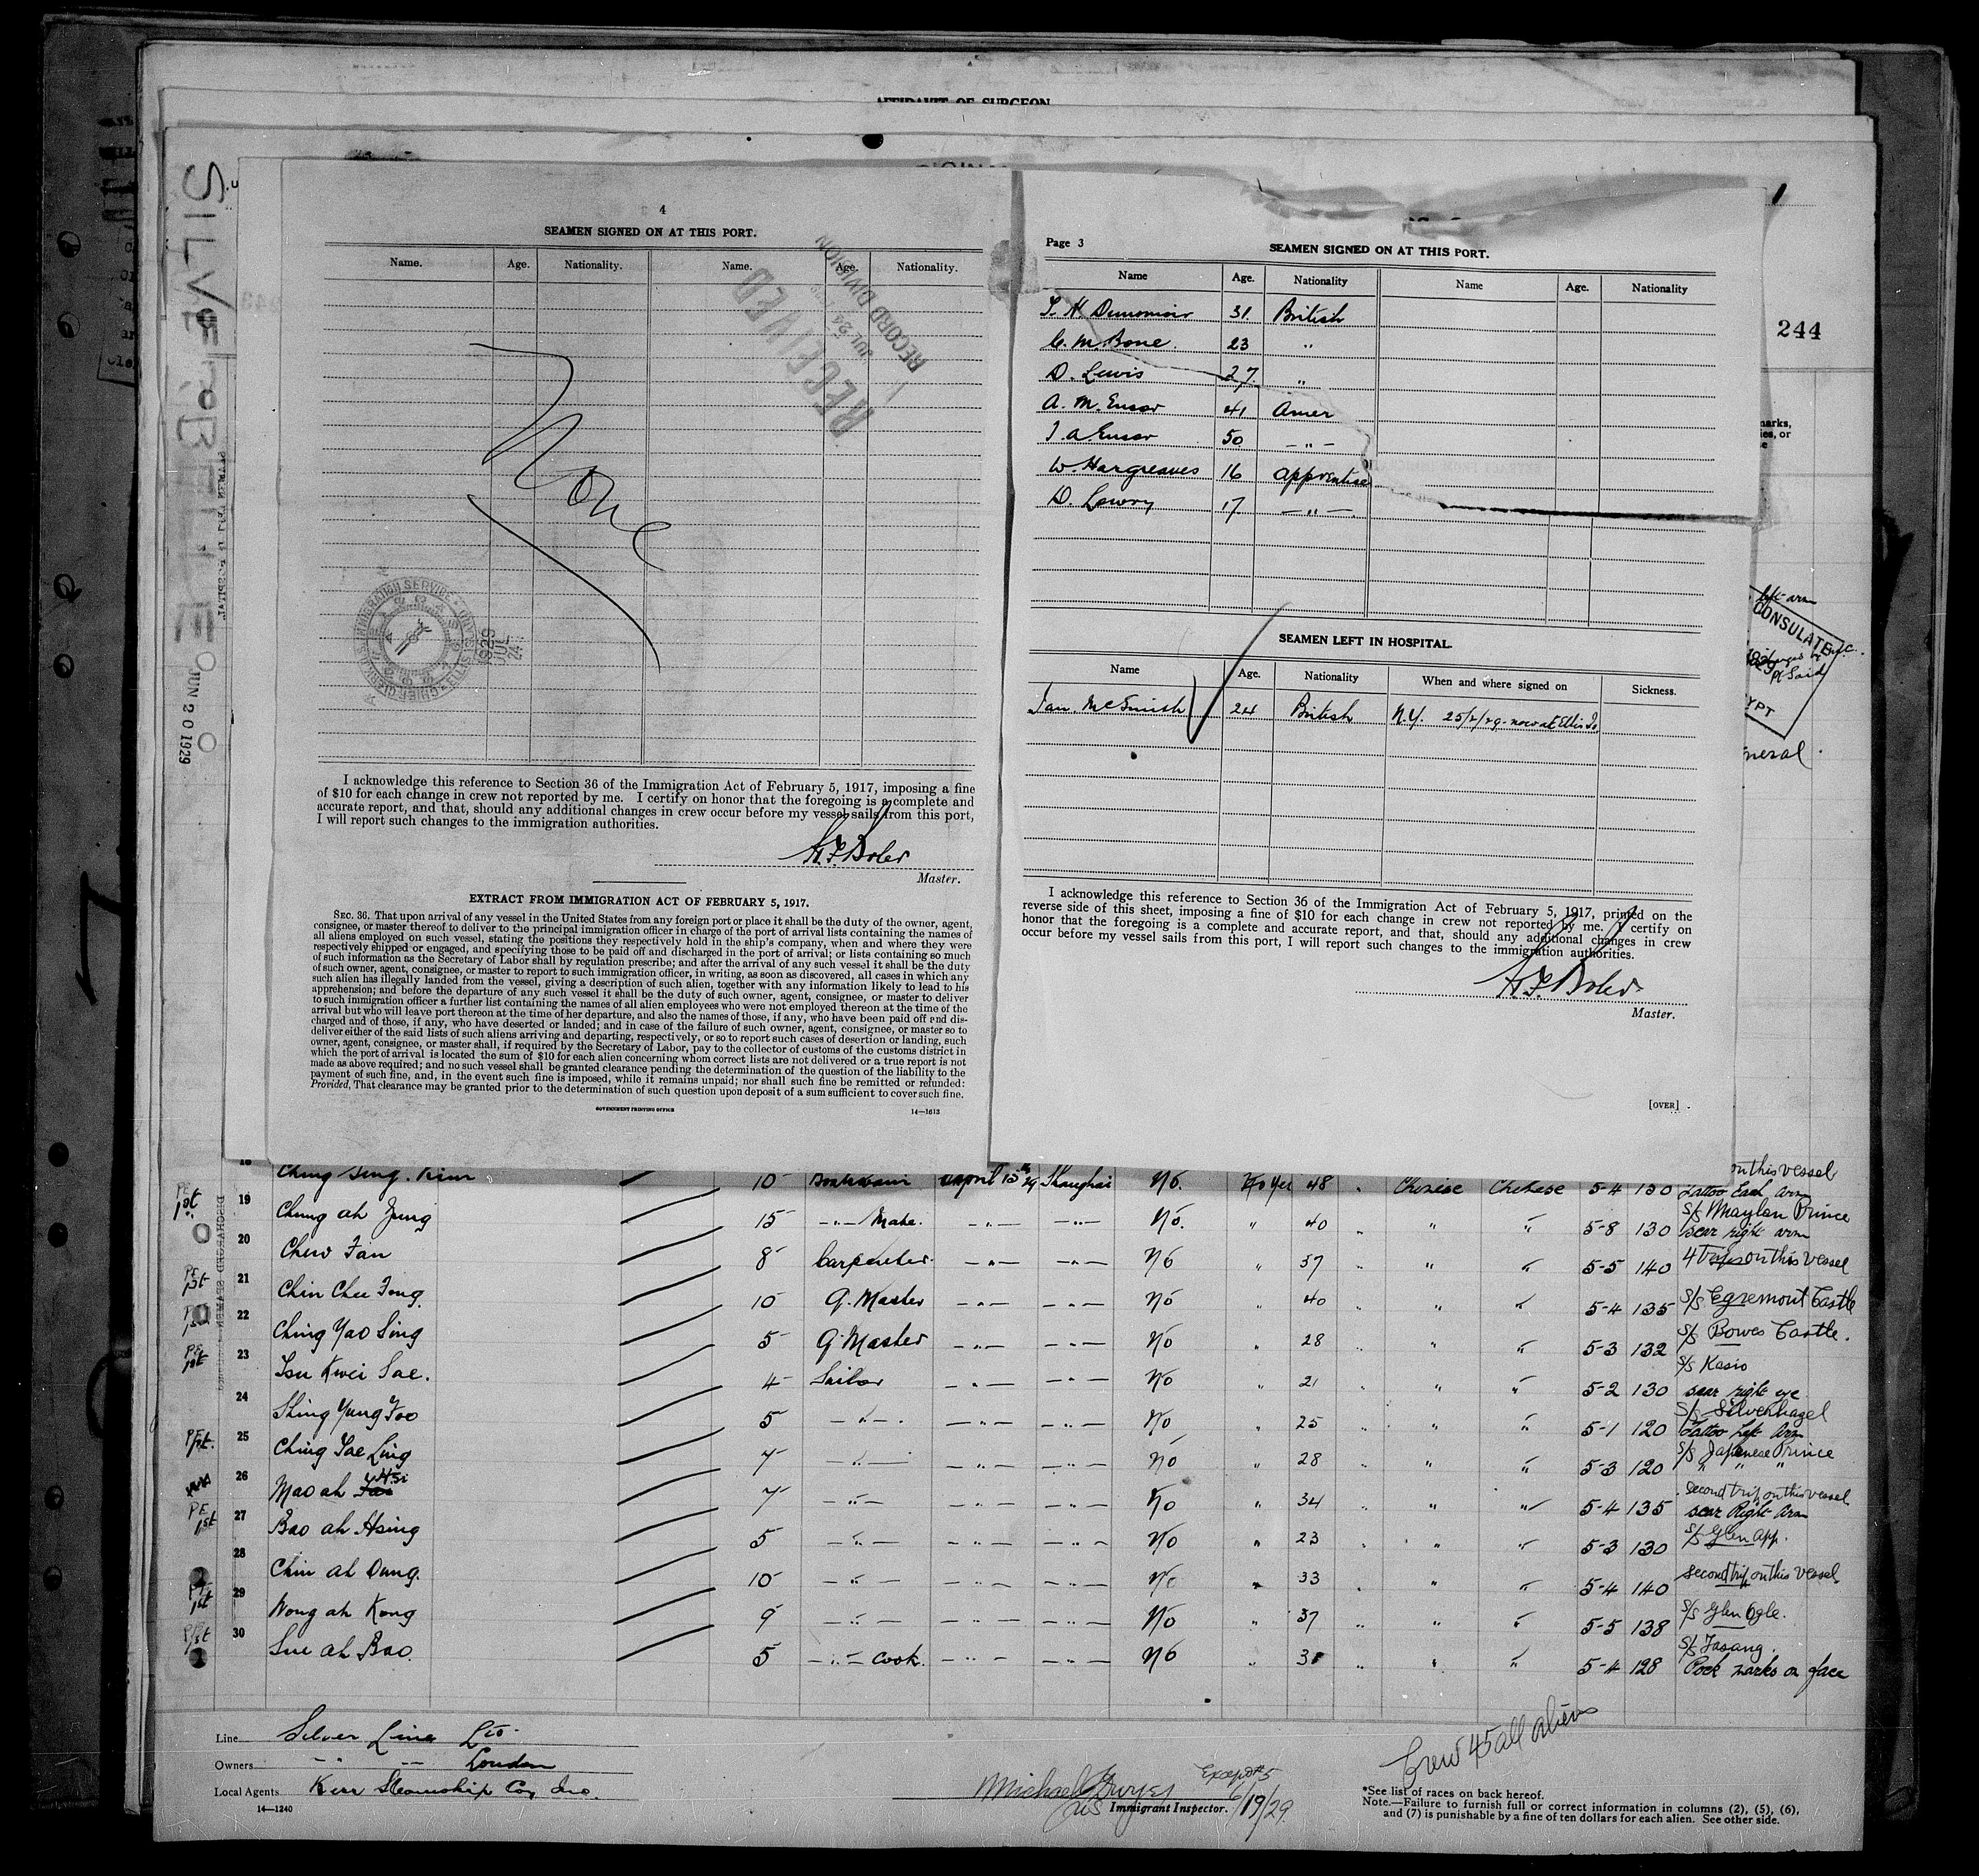 AFFIDAVIT OF SURGEON
SILVERBELLE
JUN 20 1929
244
4
SEAMEN SIGNED ON AT THIS PORT.
Name. Age. Nationality. Name. Age. Nationality.
RECEIVED
JUL 24
RECORD DIVISION
None
IMMIGRATION SERVICE
1929
JUL
24
I acknowledge this reference to Section 36 of the Immigration Act of February 5, 1917, imposing a fine
of $10 for each change in crew not reported by me. I certify on honor that the foregoing is a complete and
accurate report, and that, should any additional changes in crew occur before my vessel sails from this port,
I will report such changes to the immigration authorities.
Master.
EXTRACT FROM IMMIGRATION ACT OF FEBRUARY 5, 1917.
SEC. 36. That upon arrival of any vessel in the United States from any foreign port or place it shall be the duty of the owner, agent,
consignee, or master thereof to deliver to the principal immigration officer in charge of the port of arrival lists containing the names of
all aliens employed on such vessel, stating the positions they respectively hold in the ship's company, when and where they were
respectively shipped or engaged, and specifying those to be paid off and discharged in the port of arrival; or lists containing so much
of such information as the Secretary of Labor shall by regulation prescribe; and after the arrival of any such vessel it shall be the duty
of such owner, agent, consignee, or master to report to such immigration officer, in writing, as soon as discovered, all cases in which any
such alien has illegally landed from the vessel, giving a description of such alien, together with any information likely to lead to his
apprehension; and before the departure of any such vessel it shall be the duty of such owner, agent, consignee, or master to deliver
to such immigration officer a further list containing the names of all alien employees who were not employed thereon at the time of the
arrival but who will leave port thereon at the time of her departure, and also the names of those, if any, who have been paid off and dis-
charged and of those, if any, who have deserted or landed; and in case of the failure of such owner, agent, consignee, or master so to
deliver either of the said lists of such aliens arriving and departing, respectively, or so to report such cases of desertion or landing, such
owner, agent, consignee, or master shall, if required by the Secretary of Labor, pay to the collector of customs of the customs district in
which the port of arrival is located the sum of $10 for each alien concerning whom correct lists are not delivered or a true report is not
made as above required; and no such vessel shall be granted clearance pending the determination of the question of the liability to the
payment of such fine, and, in the event such fine is imposed, while it remains unpaid; nor shall such fine be remitted or refunded:
Provided, That clearance may be granted prior to the determination of such question upon deposit of a sum sufficient to cover such fine.
GOVERNMENT PRINTING OFFICE 14—1613
Page 3
SEAMEN SIGNED ON AT THIS PORT.
Name Age. Nationality Name Age. Nationality
31. British
C. M. Bone. 23 "
D. Lewis 27. "
A. M. Ensor 41 Amer
J. A. Ensor 50 — " —
W. Hargreaves 16 apprentice
D. Lowry 17. — " —
SEAMEN LEFT IN HOSPITAL.
Name Age. Nationality When and where signed on Sickness.
Jan. McSmith 24 British N.Y. 25/2/29 - now at Ellis Is
I acknowledge this reference to Section 36 of the Immigration Act of February 5, 1917, printed on the
reverse side of this sheet, imposing a fine of $10 for each change in crew not reported by me. I certify on
honor that the foregoing is a complete and accurate report, and that, should any additional changes in crew
occur before my vessel sails from this port, I will report such changes to the immigration authorities.
Master.
[OVER]
left arm
CONSULATE
Pt Said
18 Ching Sing. Kim 10 Boatswain April 15th 29 Shanghai No. Yes 48 " Chinese Chinese 5-4 130 on this vessel
Tattoo Each Arm
19 Chung ah Jung 15 — " — Mate. — " — — " — No. " 40 " " " 5-8 130 S/S Maylan Prince
scar right arm
20 Chew Fan 8 Carpenter. — " — — " — No " 37 " " " 5-5 140 4 Trips on this vessel
21 Chin Chu Fong. 10 Q. Master — " — — " — No " 40 " " " 5-4 135 S/S Egremont Castle
22 Ching Yao Sing 5 Q. Master — " — — " — No " 28 " " " 5-3 132 S/S Bowes Castle.
23 Tsu Kwei Sae. 4 Sailor — " — — " — No " 21 " " " 5-2 130 S/S Kasio
scar right eye
24 Shing Yung Foo 5 — " — — " — — " — No " 25 " " " 5-1 120 S/S Silverhazel
Tattoo Left Arm
25 Ching Sae Ling 7 — " — — " — — " — No " 28 " " " 5-3 120 S/S Japanese Prince
26 Mao ah 7 — " — — " — — " — No " 34 " " " 5-4 135 second trip on this vessel
scar Right Arm
27 Bao ah Hsing 5 — " — — " — — " — No " 23 " " " 5-3 130 S/S Glenapp.
28 Chin ah Dung. 10 — " — — " — — " — No " 33 " " " 5-4 140 second trip on this vessel
29 Wong ah Kong 9 — " — — " — — " — No " 37 " " " 5-5 138 S/S Glen Ogle.
30 Sue ah Bao. 5 — " — Cook. — " — — " — No " " " " 5-4 128 S/S Fasang.
Pock marks on face
Line Silver Line Ltd.
Owners — " — — London
Local Agents Kerr Steamship Co, Inc.
14—1240
Immigrant Inspector. 6/19/29
Crew 45 all aliens
*See list of races on back hereof.
Note.—Failure to furnish full or correct information in columns (2), (5), (6),
and (7) is punishable by a fine of ten dollars for each alien. See other side.